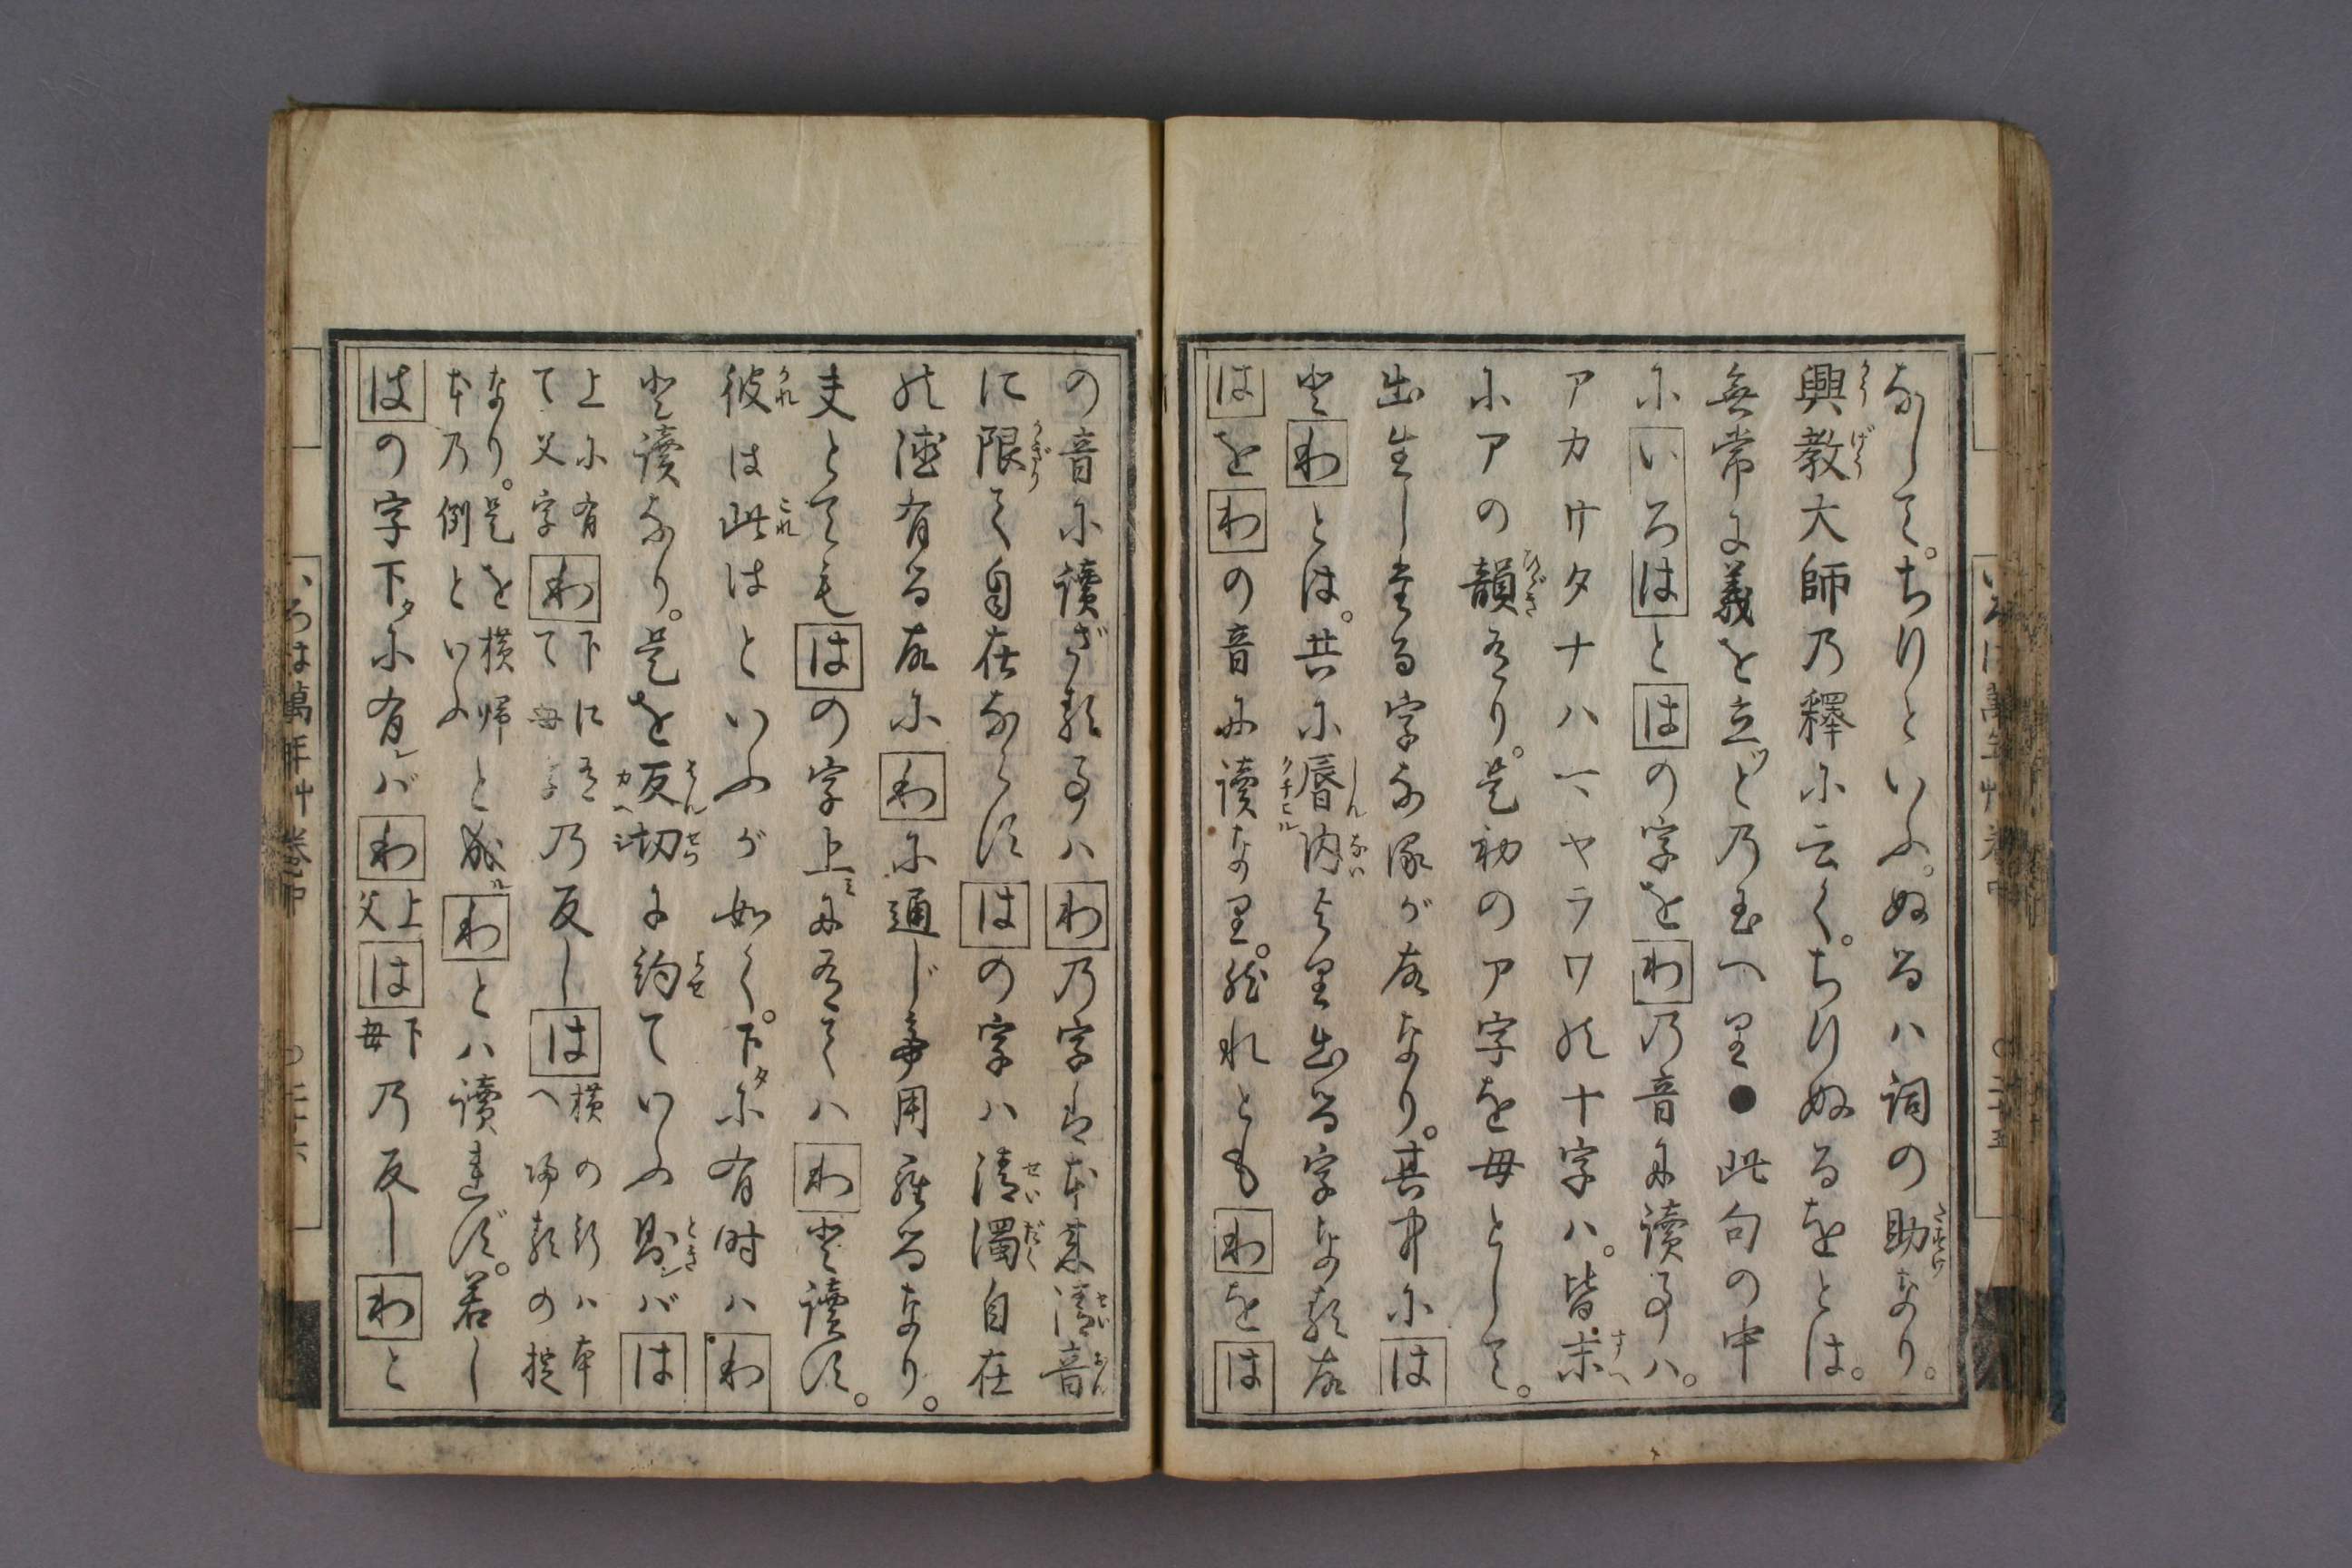 なして。ちりといふ。ぬるハ詞の助なり。
興教大師乃釋に云く。ちりぬるをとは。
無常に義を立ツと乃玉へり●此句の中
にいろはとはの字をわ乃音に讀事ハ。
アカサタナハマヤラワの十字ハ。皆末
にアの韻有り。是初のア字を母として。
出生したる字なるが故なり。其中には
とわとは。共に唇内より出る字なる故
はをわの音に讀なり。然れともわをは
の音に讀ざる事ハわ乃字は本来清音
に限て自在ならずはの字ハ清濁自在
の徳有る故にわに通じ用るなり。
夫とても はの字上ミに有てハわと讀ず。
彼は此はといふが如く。下タに有時ハわ
と讀なり。是を反切に約ていふ則ンバは
上に有て父字わ下に有て母字乃反しは横の行ハ本へ帰る の掟
なり。是を横帰本乃例といふと成ルわとハ讀れず。若し
はの字下タに有レバわ上父は下母乃反しわと
いろは萬年草 巻中 ○二十五
いろは萬年草 巻中 ○二十六